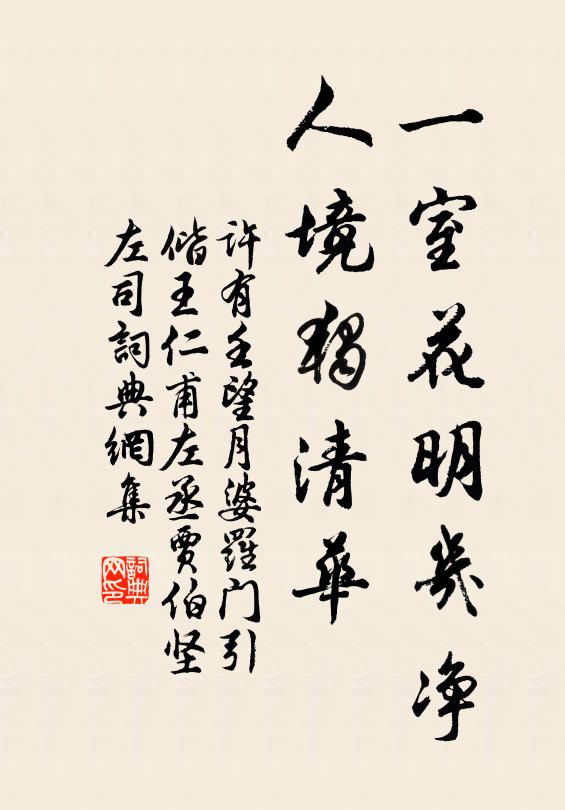 一室花明几净
人境独清华
许有壬望月婆罗门引
偕王仁甫左丞贾伯坚
左司词典网集
词典网印